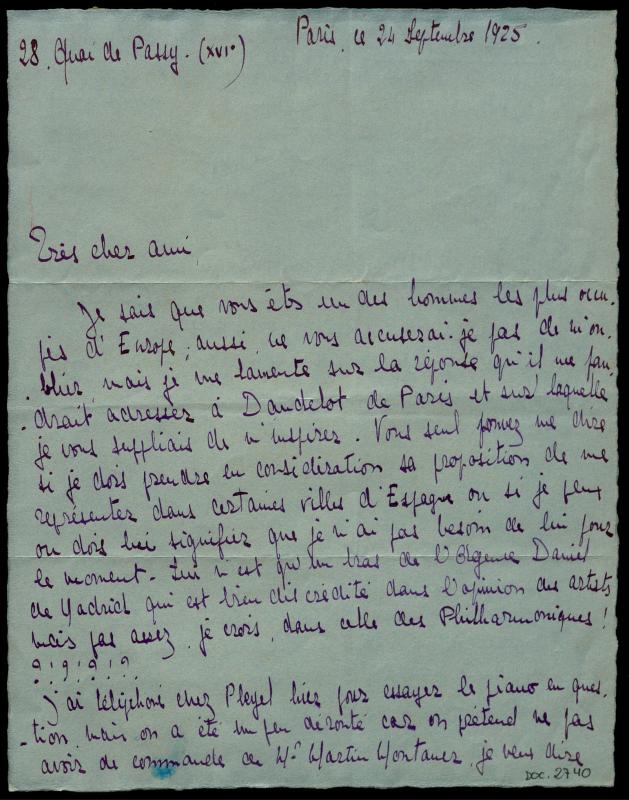 Paris, ce 24 Septembre 1925.
28, Quai de Passy. (XVIe)
Très cher ami,
Je sais que vous êtes un des hommes les plus occu-
pés d'Europe, aussi ne vous accuserai-je pas de m'ou-
blier, mais je me lamente sur la réponse qu'il me fau-
drait adresser à Dandelot de Paris et sur laquelle
je vous suppliais de m'inspirer. Vous seul pouvez me dire
si je dois prendre en considération sa proposition de me
représenter dans certaines villes d'Espagne ou si je peux
ou dois lui signifier que je n'ai pas besoin de lui pour
le moment. Lui n'est qu'un bras de l'Agence Daniel
de Madrid qui est bien discrédité dans l'opinion des artistes
mais pas assez, je crois, dans celle des Philharmoniques!
?!?!?!?
J'ai téléphoné chez Pleyel hier pour essayer le piano en ques-
tion, mais on a été un peu dérouté car on prétend ne pas
avoir de commande de Mr Martin Montanez, je veux dire
DOC. 2740